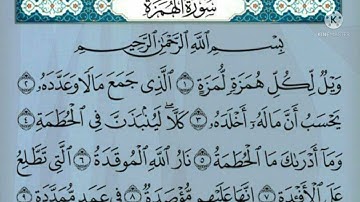 سُورَةُ الْهُمَزَةِ
KINEMASTER
بِسْمِ اللَّهِ الرَّحْمَٰنِ الرَّحِيمِ
وَيْلٌ لِّكُلِّ هُمَزَةٍ لُّمَزَةٍ ١ الَّذِي جَمَعَ مَالًا وَعَدَّدَهُ ٢
يَحْسَبُ أَنَّ مَالَهُ أَخْلَدَهُ ٣ كَلَّا لَيُنْبَذَنَّ فِي الْحُطَمَةِ ٤
وَمَا أَدْرَىٰكَ مَا الْحُطَمَةُ ٥ نَارُ اللَّهِ الْمُوقَدَةُ ٦ الَّتِي تَطَّلِعُ
عَلَى الْأَفْئِدَةِ ٧ إِنَّهَا عَلَيْهِم مُّؤْصَدَةٌ ٨ فِي عَمَدٍ مُّمَدَّدَةٍ ٩